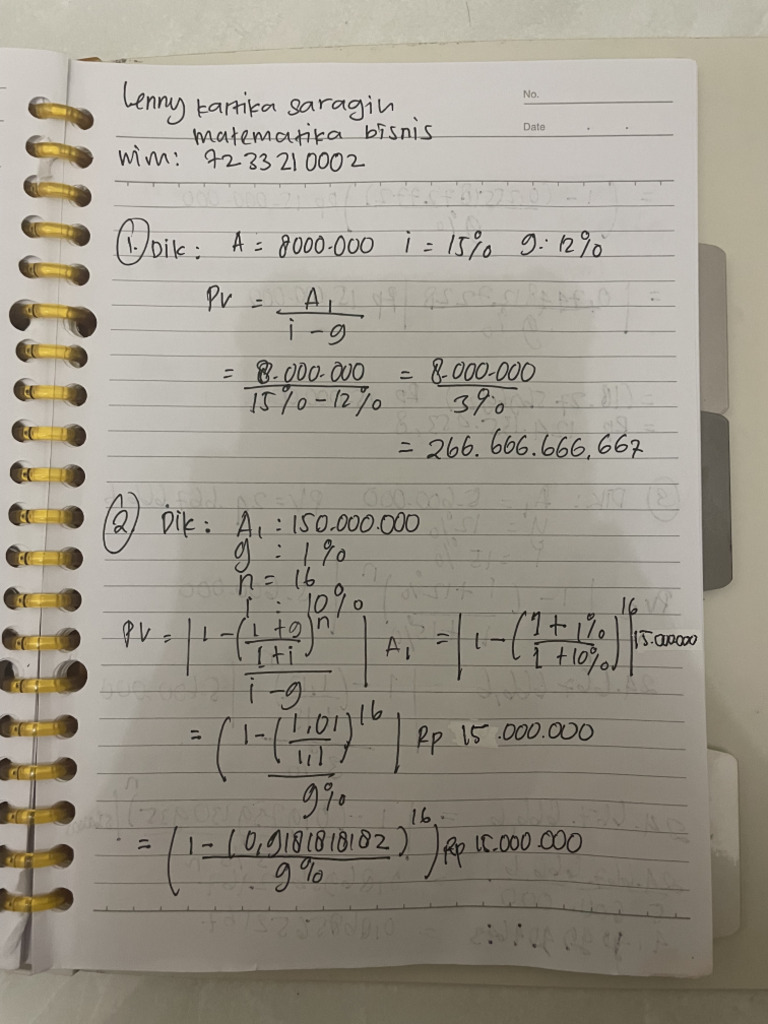 No.
Date
Lenny kartika saragih
matematika bisnis
Nim: 7233210002
1. Dik: A = 8000.000 i = 15% g: 12%
PV = A₁
i - g
= 8.000.000 = 8.000.000
15% - 12% 3%
= 266.666.666,667
2 Dik: A₁ : 150.000.000
g : 1%
n = 16
i : 10%
PV = |1 - (1+g)ⁿ| A₁ = |1 - (1+1%)¹⁶| 15.000.000
1+i 1+10%
i - g
= (1 - (1,01)¹⁶| Rp 15.000.000
1,1
9%
= (1 - (0,9181818182)¹⁶) Rp 15.000.000
9%